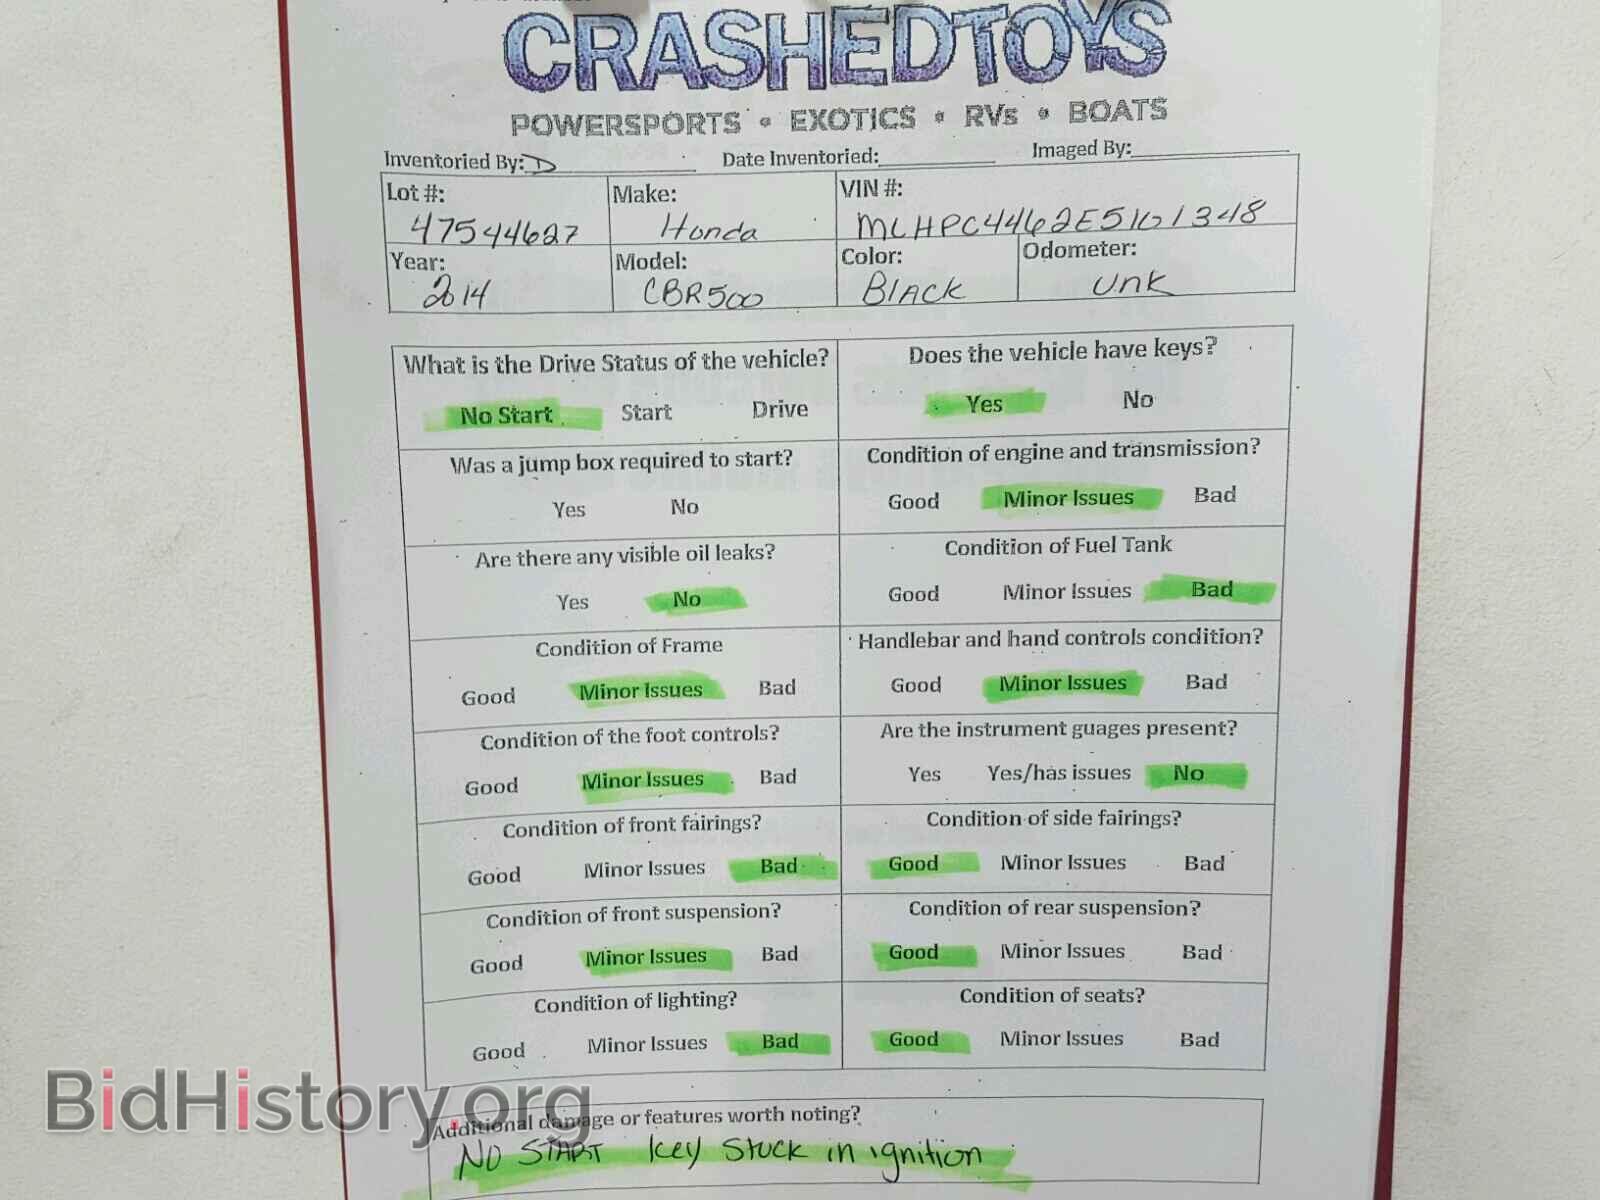 CRASHEDTOYS
POWERSPORTS • EXOTICS • RVs • BOATS
Inventoried By: D Date Inventoried: Imaged By:
Lot #: Make: VIN #:
47544627 Honda MLHPC4462E5101348
Year: Model: Color: Odometer:
2014 CBR500 Black unk
What is the Drive Status of the vehicle? Does the vehicle have keys?
No Start Start Drive Yes No
Was a jump box required to start? Condition of engine and transmission?
Yes No Good Minor Issues Bad
Are there any visible oil leaks? Condition of Fuel Tank
Yes No Good Minor Issues Bad
Condition of Frame Handlebar and hand controls condition?
Good Minor Issues Bad Good Minor Issues Bad
Condition of the foot controls? Are the instrument guages present?
Good Minor Issues Bad Yes Yes/has issues No
Condition of front fairings? Condition of side fairings?
Good Minor Issues Bad Good Minor Issues Bad
Condition of front suspension? Condition of rear suspension?
Good Minor Issues Bad Good Minor Issues Bad
Condition of lighting? Condition of seats?
Good Minor Issues Bad Good Minor Issues Bad
BidHistory.org
Additional damage or features worth noting?
NO START Key Stuck in ignition